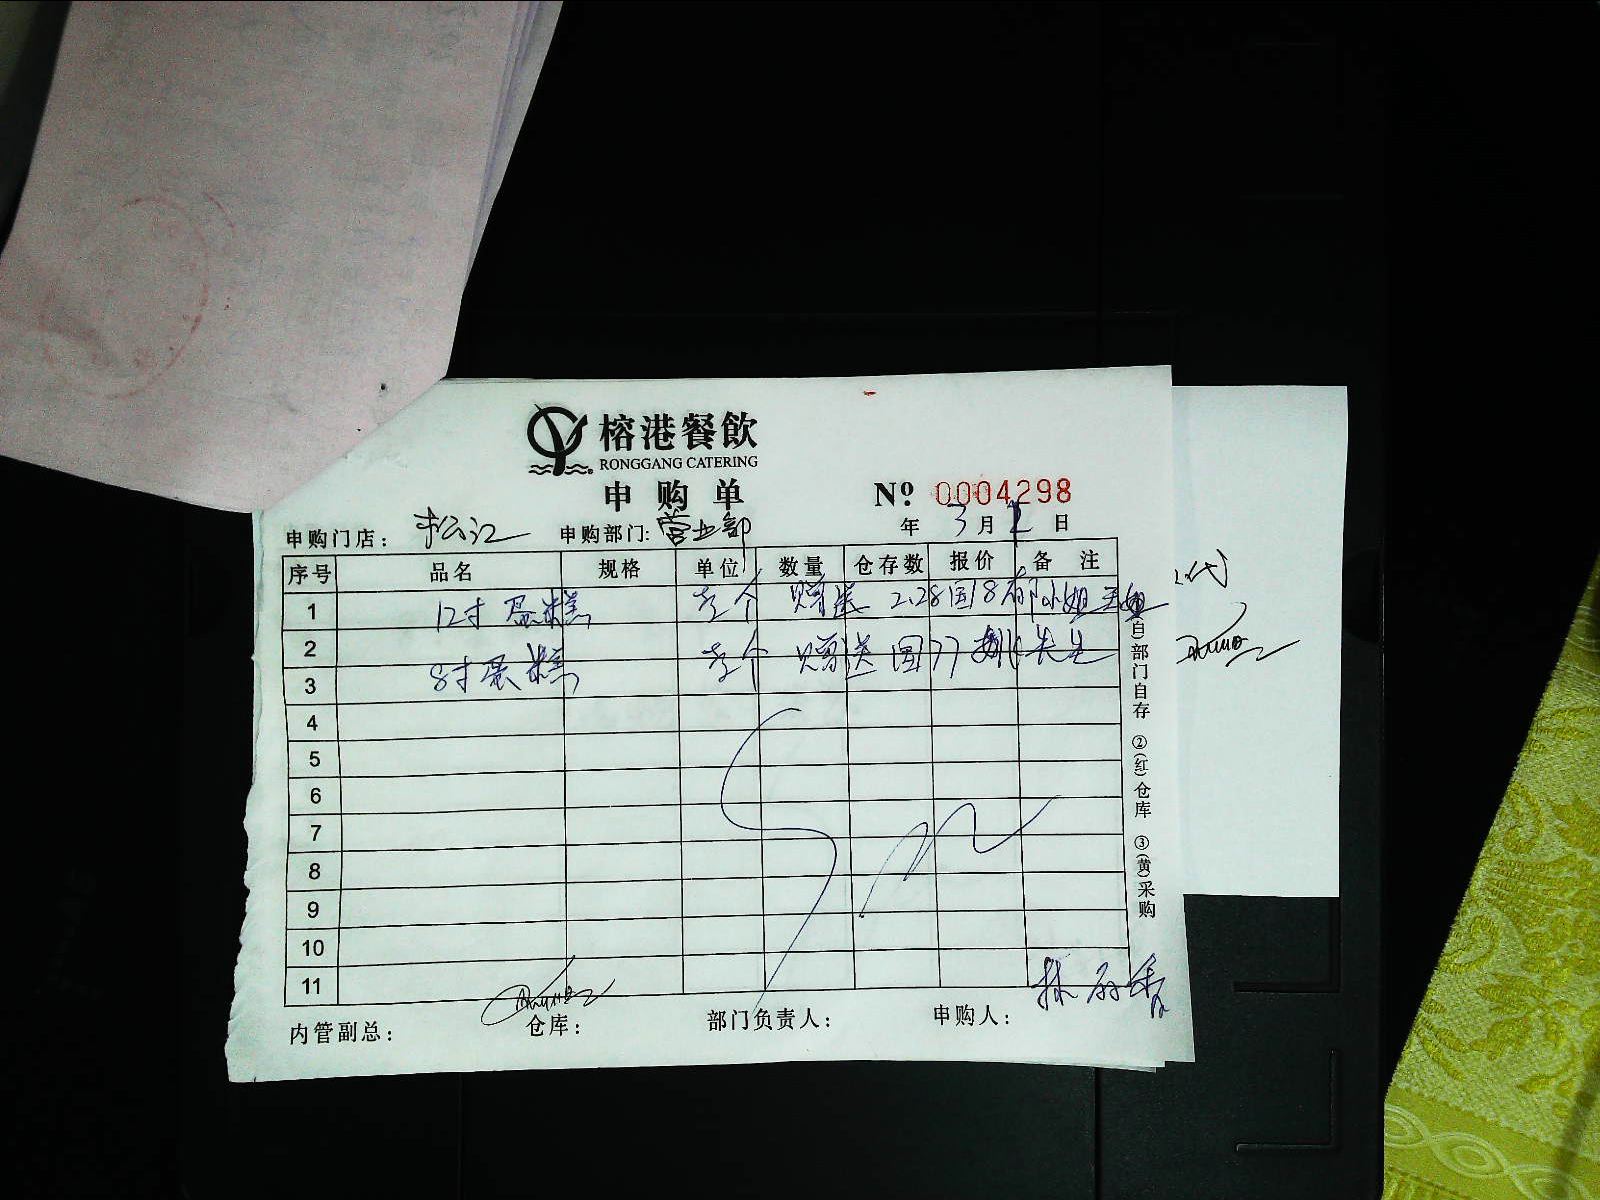 榕港餐飲
RONGGANG CATERING
申购单
No. 0004298
申购门店：松江 申购部门：营业部 年 3月 日
序号 品名 规格 单位 数量 仓存数 报价 备注
1 12寸蛋糕 壹个 赠送 2.28国18 小姐
2 8寸蛋糕 壹个 赠送 国77 先生
3
4
5
6
7
8
9
10
11
内管副总： 仓库： 部门负责人： 申购人：林
(白)部门自存 ②(红)仓库 ③(黄)采购
代